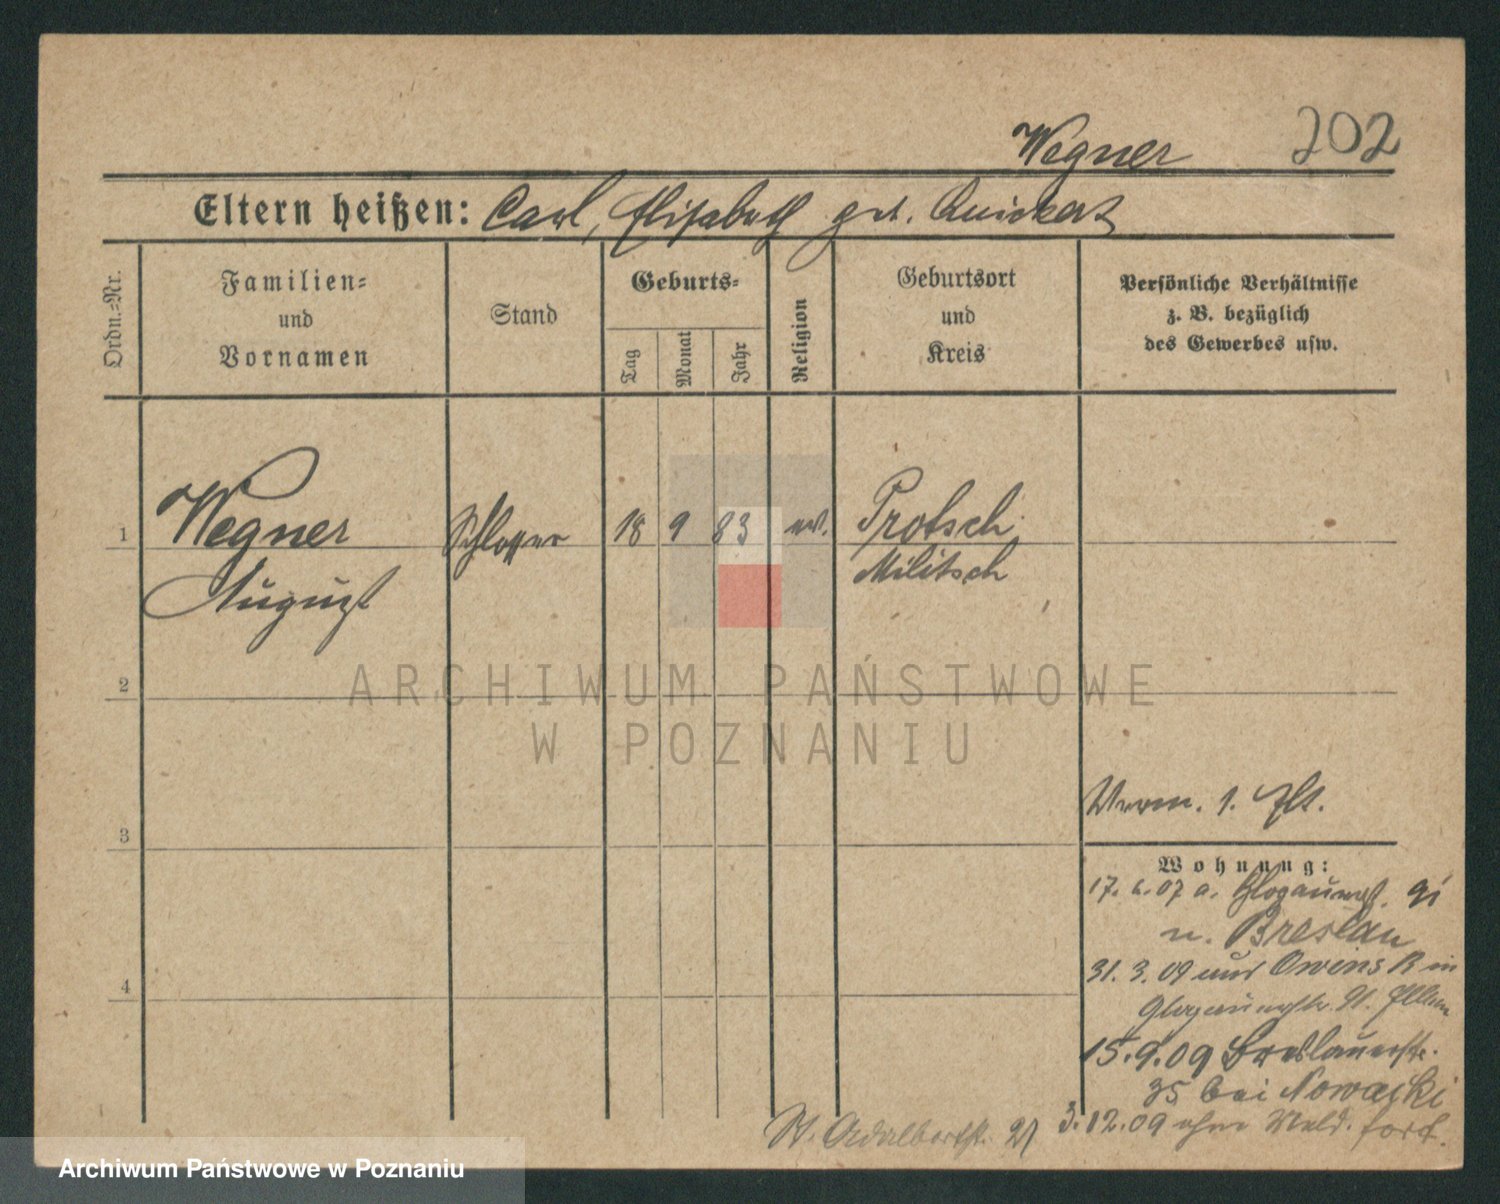 Wegner 202
Eltern heißen: Carl, Elisabeth geb. Quickert
Ordn.=Nr.
Familien=
und
Vornamen
Stand
Geburts=
Tag
Monat
Jahr
Religion
Geburtsort
und
Kreis
Persönliche Verhältnisse
z. B. bezüglich
des Gewerbes usw.
1 Wegner Schlosser 18 9 83 ev. Protsch
August Militsch
2
ARCHIWUM PAŃSTWOWE
W POZNANIU
3
4
1.
Wohnung:
17. 6. 07 a. 91
u. Breslau
31. 3. 09 aus in
91.
15.9.09 Breslauerstr.
35 bei Nowacki
St. Adalbertstr. 21 3.12.09 ohne Meld. fort.
Archiwum Państwowe w Poznaniu